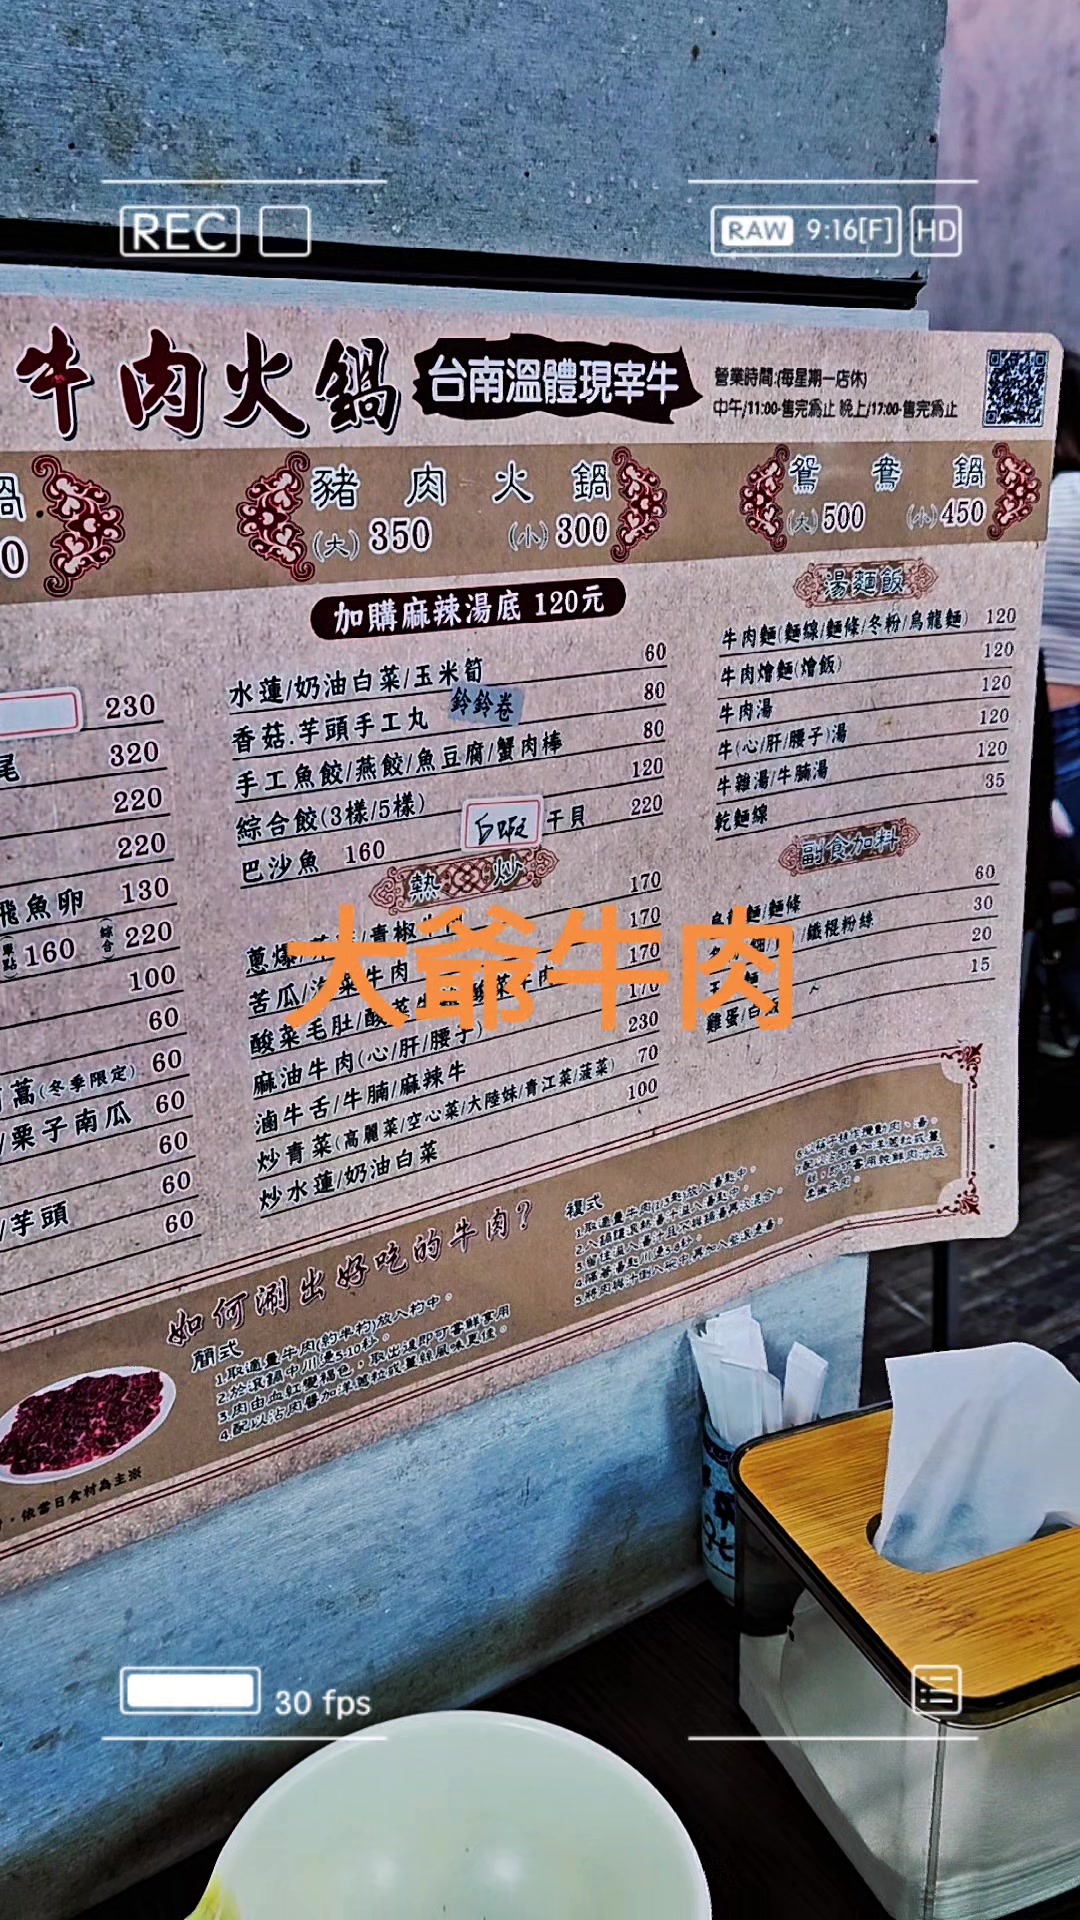 REC
RAW 9:16[F] HD
牛肉火鍋 台南溫體現宰牛
營業時間:(每星期一店休)
中午/11:00-售完為止 晚上/17:00-售完為止
鍋
0
豬肉火鍋
(大) 350 (小) 300
鴛鴦鍋
(大) 500 (小) 450
230
尾 320
220
220
飛魚卵 130
單點 160 綜合 220
100
60
萵(冬季限定) 60
/栗子南瓜 60
60
60
/芋頭 60
加購麻辣湯底 120元
水蓮/奶油白菜/玉米筍 60
香菇.芋頭手工丸 鈴鈴卷 80
手工魚餃/燕餃/魚豆腐/蟹肉棒 80
綜合餃(3樣/5樣) 120
巴沙魚 160 白蝦 干貝 220
熱炒
170
苦瓜/ 牛肉 170
酸菜毛肚/酸菜 170
麻油牛肉(心/肝/腰子) 170
滷牛舌/牛腩/麻辣牛 230
炒青菜(高麗菜/空心菜/大陸妹/青江菜/菠菜) 70
炒水蓮/奶油白菜 100
湯麵飯
牛肉麵(麵線/麵條/冬粉/烏龍麵) 120
牛肉燴麵(燴飯) 120
牛肉湯 120
牛(心/肝/腰子)湯 120
牛雜湯/牛腩湯 120
乾麵線 35
副食加料
麵/麵條 60
/鐵棍粉絲 30
麵 20
雞蛋/白飯 15
大爺牛肉
如何涮出好吃的牛肉?
簡式
1.取適量牛肉(約半杓)放入杓中。
2.於滾鍋中川燙5-10秒。
3.肉由血紅變褐色，取出後即可嘗鮮食用
4.配以沾肉醬加洋蔥粒或薑絲風味更佳。
複式
·依當日食材為主※
30 fps